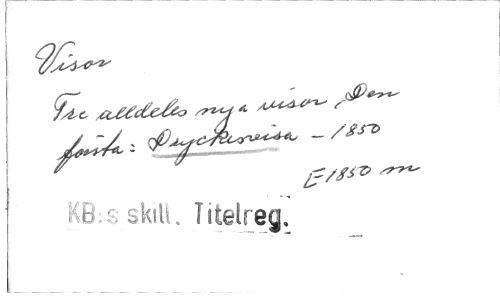 Visor
Tre alldeles nya visor, Den
första: Dryckesvisa – 1850
E 1850 m
KB:s skill. Titelreg.